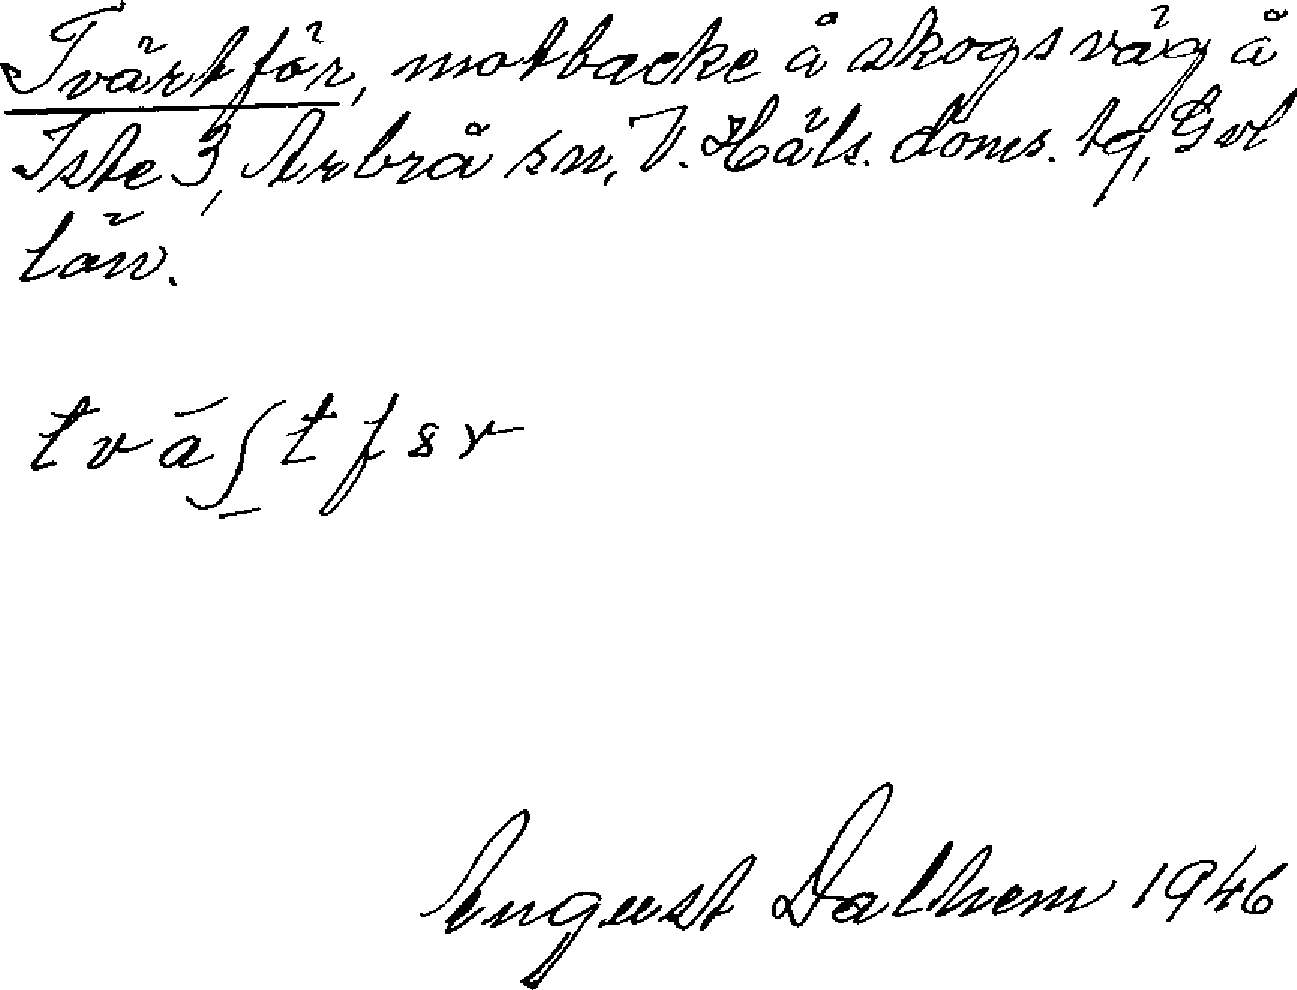 Tvärtför, motbacke å skogsväg å
Iste 3, Arbrå sn, V. Häls. doms. tg, Gvl
län.
August Dalhem 1946